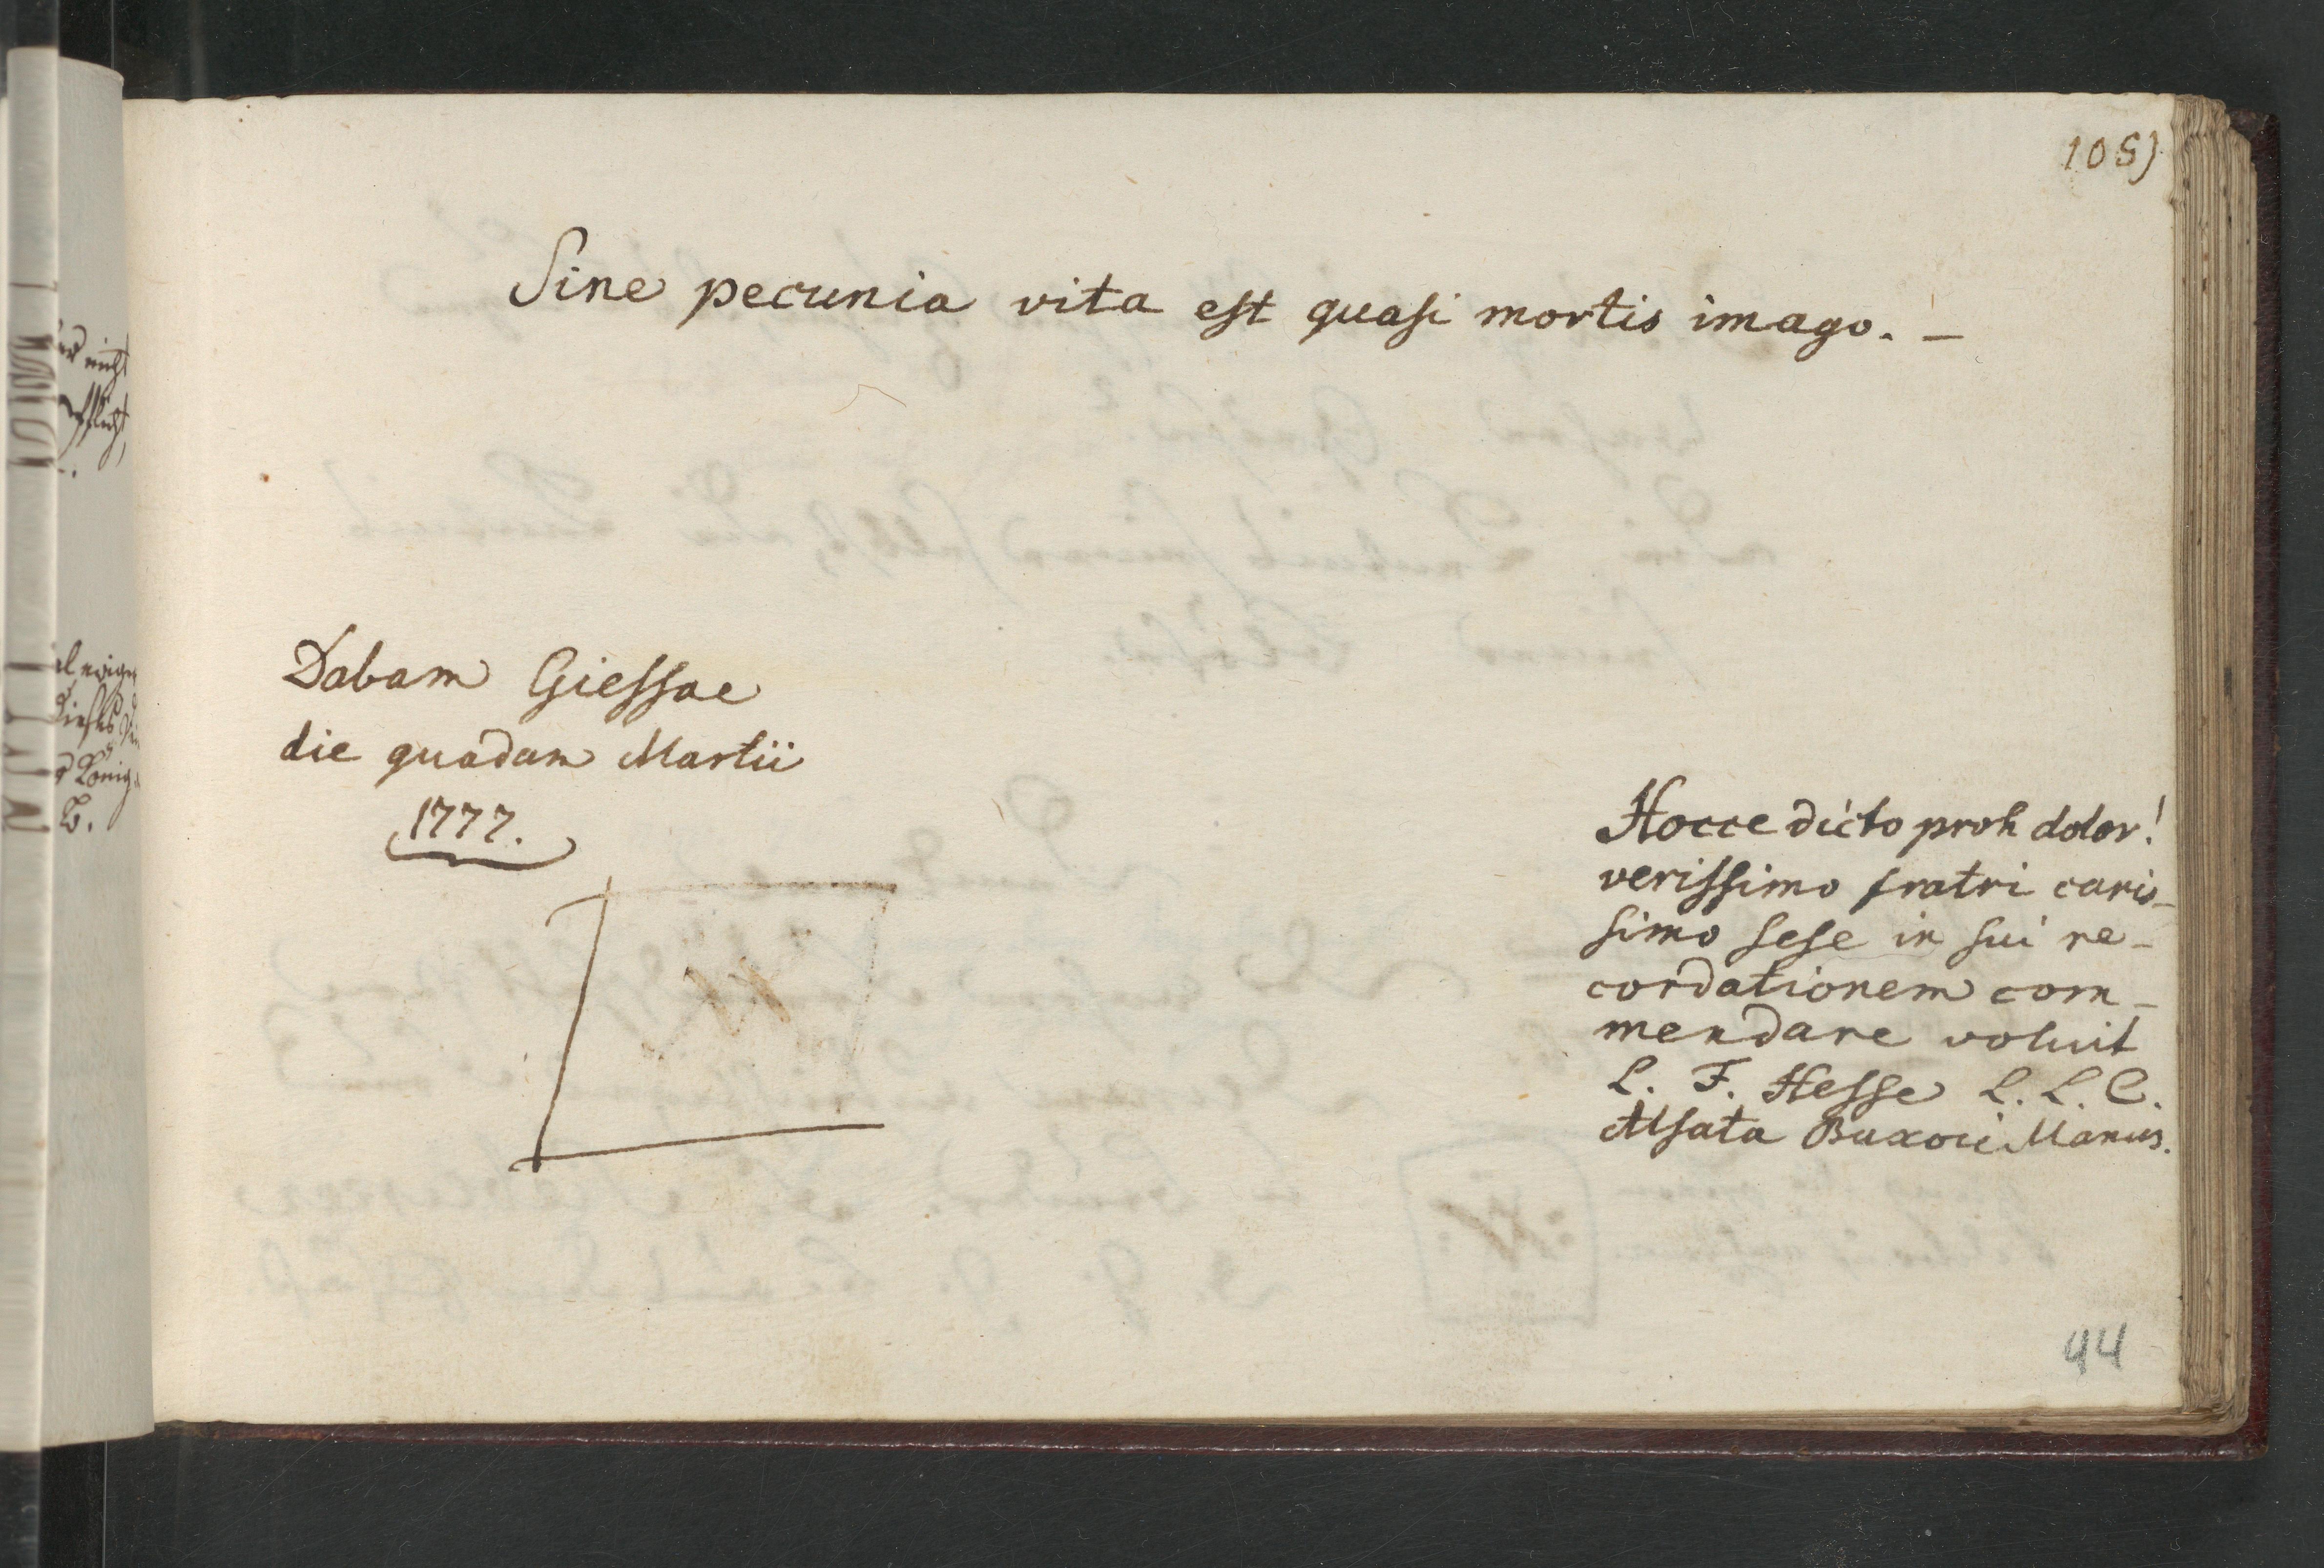 105)
Sine pecunia vita est quasi mortis imago. _
Dabam Giessae
die quadam Martii
1777.
Hocce dicto proh dolor!
verissimo fratri caris_
simo sese in sui re_
cordationem com_
mendare voluit
L. F. Hesse L. L. C.
Alsata Buxovi Manus.
44
nicht
König
B.